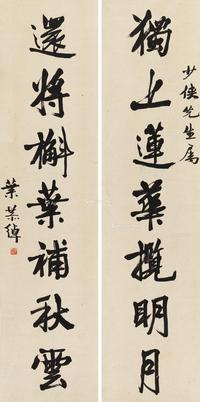 獨上蓮華攬明月
少俠先生屬
還將槲葉補秋雲
葉恭綽